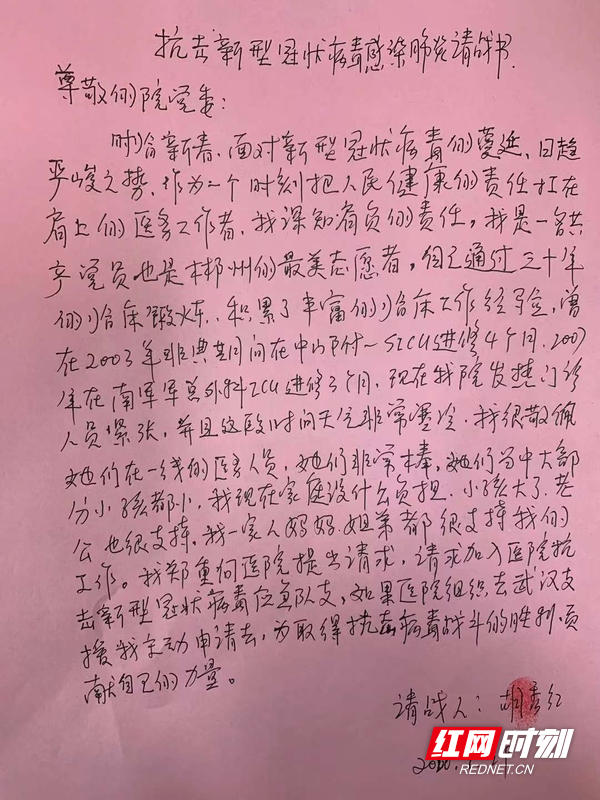 抗击新型冠状病毒感染肺炎请战书.
尊敬的院党委:
时令新春,面对新型冠状病毒的蔓延,日趋
严峻之势,作为一个时刻把人民健康的责任扛在
肩上的医务工作者,我深知肩负的责任,我是一名共
产党员也是郴州的最美志愿者,自己通过三十年
的临床锻炼,积累了丰富的临床工作经验,曾
在2003年非典其间在中山附一SICU进修4个月.2007
年在南军军总外科ICU进修3个月,现在我院发热门诊
人员紧张,并且这段时间天气非常寒冷.我很敬佩
她们在一线的医务人员,她们非常棒,她们当中大部
分小孩都小,我现在家庭没什么负担.小孩大了.老
公也很支持.我一家人妈妈.姐弟都很支持我的
工作。我郑重向医院提出请求,请求加入医院抗
击新型冠状病毒应急队支,如果医院组织去武汉支
援我主动申请去,为取得抗击病毒战斗的胜利.贡
献自己的力量。
请战人:胡秀红
2020.
红网时刻
REDNET.CN